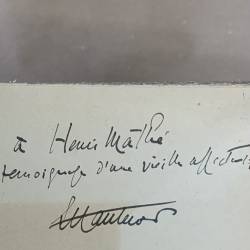 à Henri Mathé
témoignage d'une vieille affection